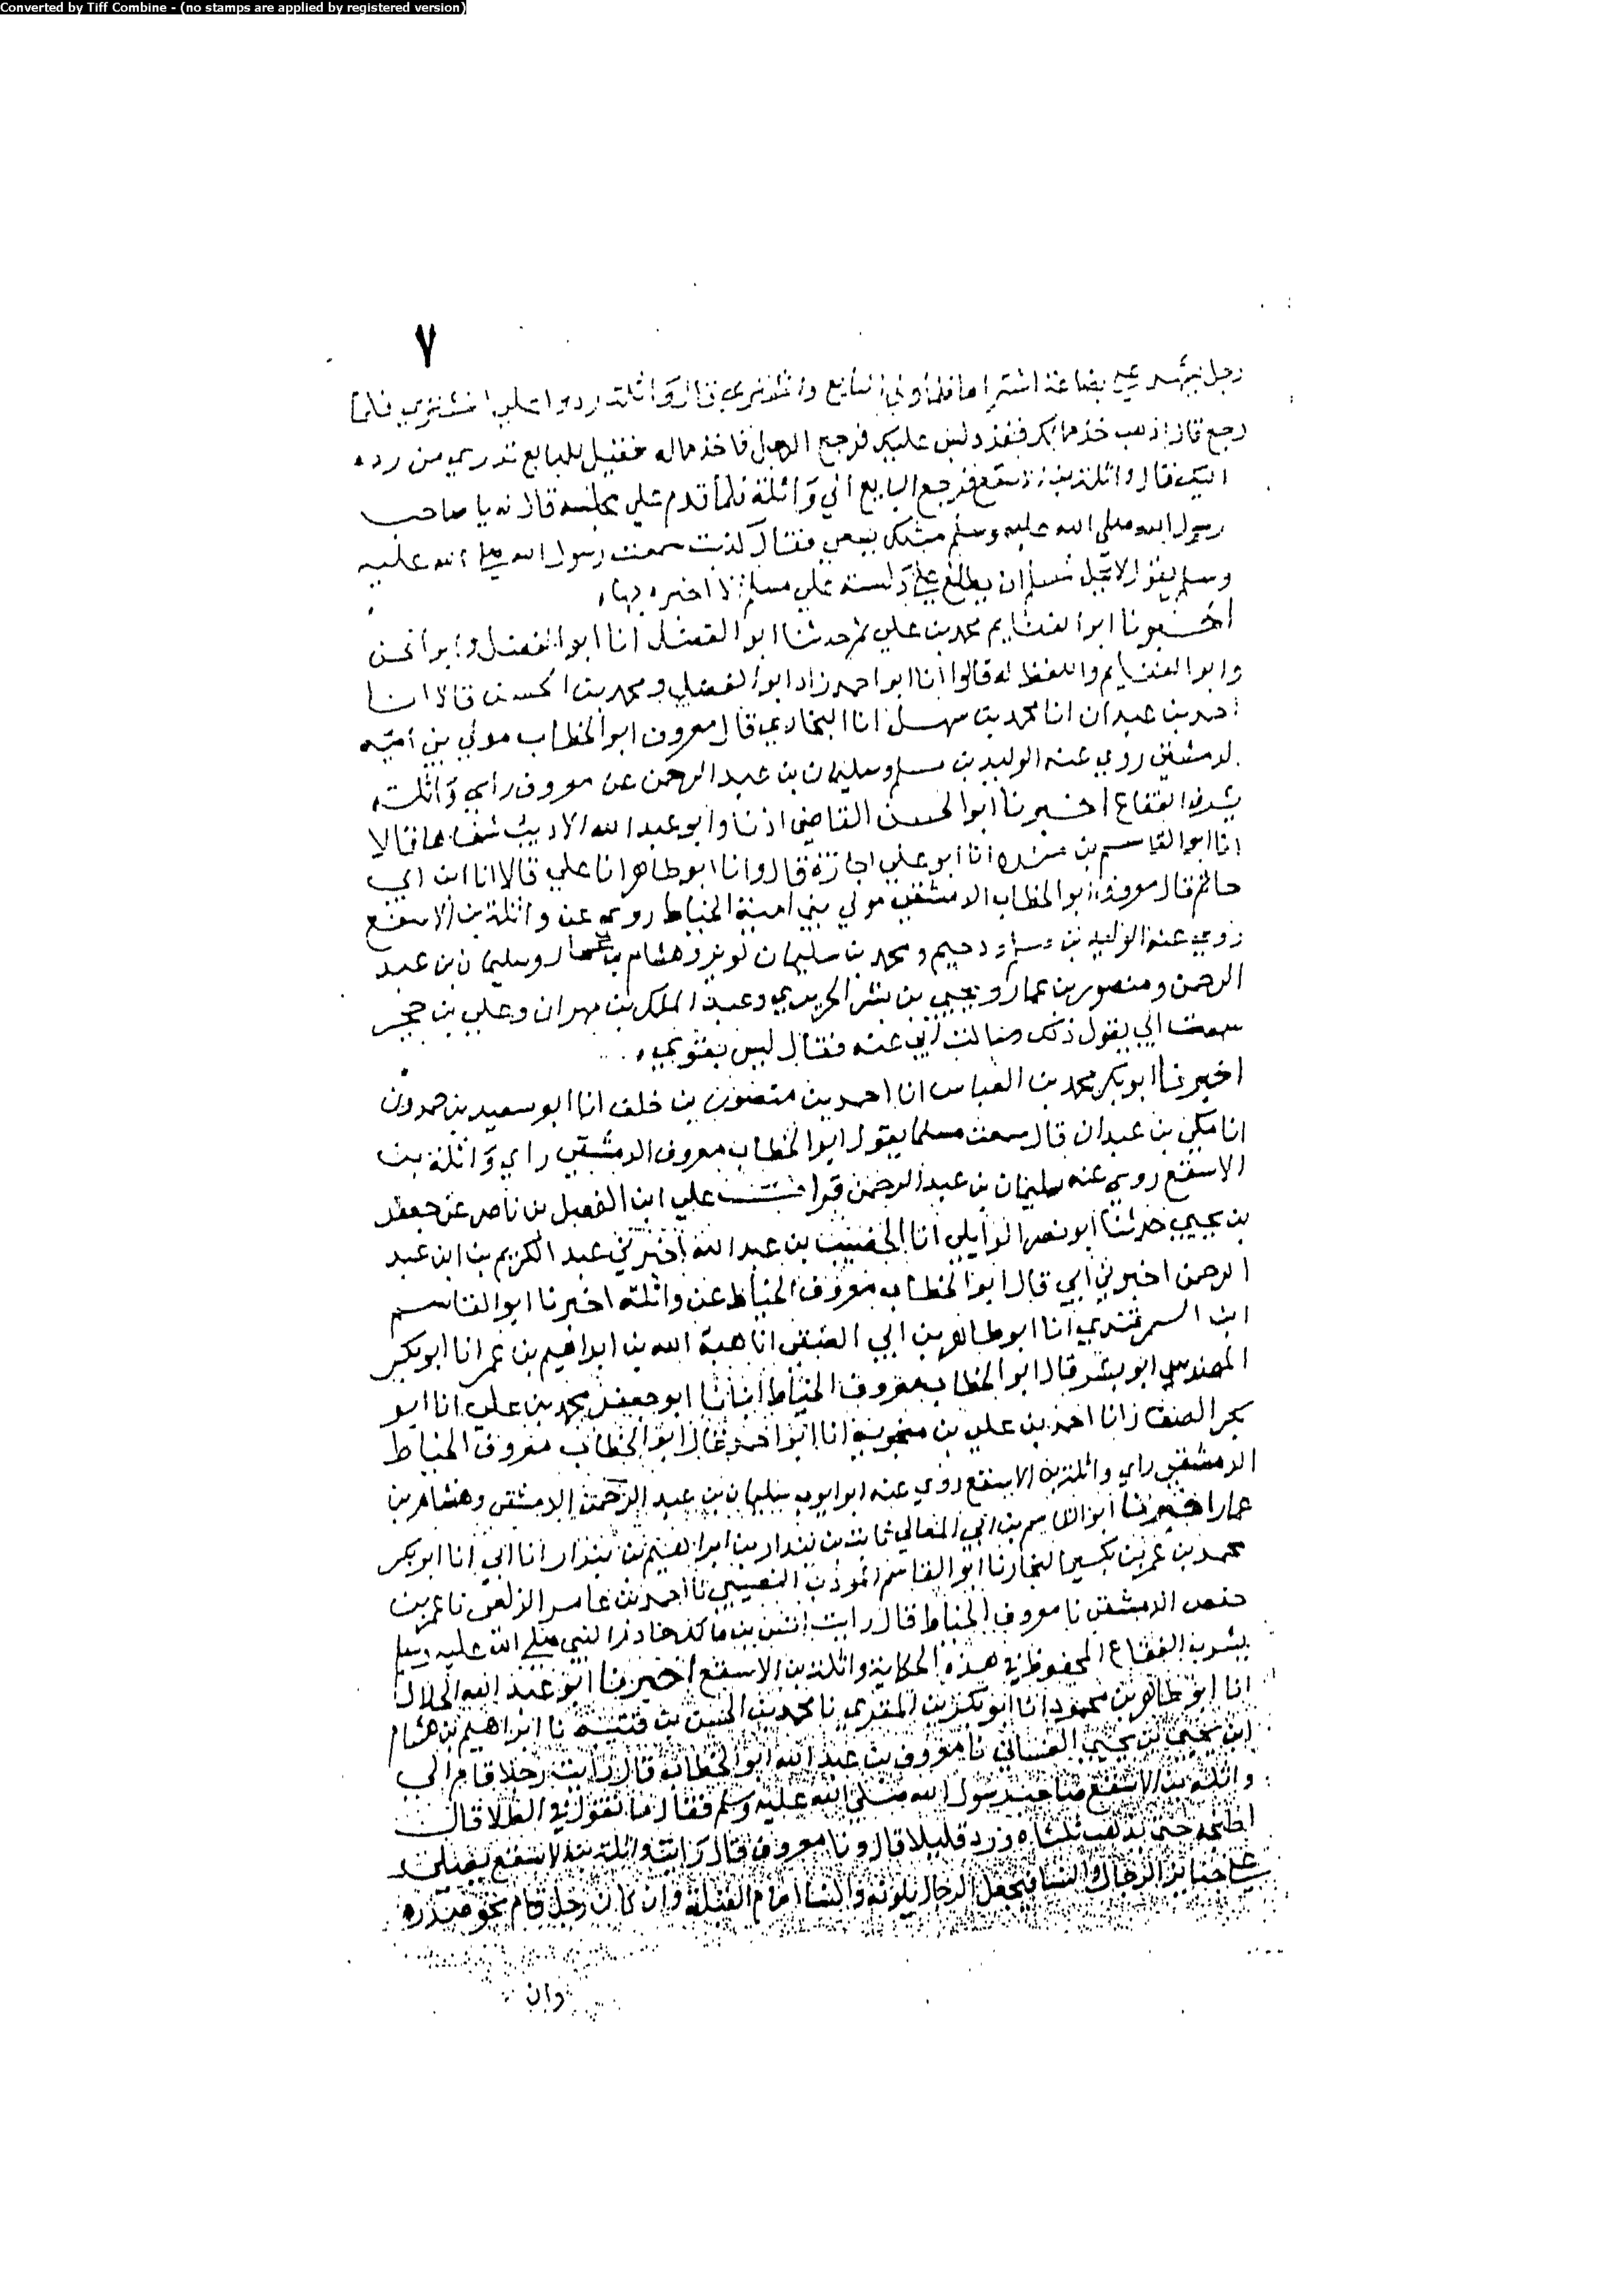 Converted by Tiff Combine - (no stamps are applied by registered version)
٧
رجل يشهد على بضاعة اشتراها فلما ولى البايع والمشتري قال واثلة ردوا علي المشتري فلما
رجع قال اذهب خذ مالك فقد دلس عليك فرجع الرجل فاخذ ماله فقيل للبايع تدري من رده
اليك فقال واثلة بن الاسقع فرجع البايع الي واثلة فلما قدم علي مجلسه قال له يا صاحب
رسول الله صلي الله عليه وسلم مثلك فقال كذبت سمعت رسول الله صلى الله عليه
وسلم يقول لا يحل لمسلم ان يطلع على دلسة علي مسلم الا اخبره بها
اخبرنا ابو الغنايم محمد بن علي ثم حدثنا ابو الفضل انا ابو الفضل وابو الحسن
وابو الغنايم واللفظ له قالوا انا ابو احمد زاد ابو الفضل ومحمد بن الحسن قالا انا
احمد بن عبدان انا محمد بن سهل انا البخاري قال معروف ابو الخطاب مولي بني امية
الدمشقي روي عنه الوليد بن مسلم وسليمان بن عبد الرحمن عن معروف راي واثلة
يشرب الفقاع اخبرنا ابو الحسين القاضي اذنا وابو عبد الله الاديب شفاها قالا
انا ابو القاسم بن منده انا ابو علي اجازة قال وانا ابو طاهر انا علي قالا انا ابن ابي
حاتم قال معروف ابو الخطاب الدمشقي مولي بني امية الخياط روي عن واثلة بن الاسقع
روي عنه الوليد بن مسلم ودحيم ومحمد بن سليمان لوين وهشام بن عمار وسليمان بن عبد
الرحمن ومنصور بن عمار ويحيي بن بشر الحريري وعبد الملك بن مهران وعلي بن حجر
سمعت ابي يقول ذلك وسالت ابي عنه فقال ليس بقوي
اخبرنا ابو بكر محمد بن العباس انا احمد بن منصور بن خلف انا ابو سعيد بن حمدون
انا مكي بن عبدان قال سمعت مسلما يقول ابو الخطاب معروف الدمشقي راي واثلة بن
الاسقع روي عنه سليمان بن عبد الرحمن قرات علي ابن الفضل بن ناصر عن جعفر
بن يحيي حدثنا ابو نصر الوايلي انا الخصيب بن عبد الله اخبرني عبد الكريم بن ابن عبد
الرحمن اخبرني ابي قال ابو الخطاب معروف الخياط عن واثلة اخبرنا ابو القاسم
ابن السمرقندي انا ابو طاهر بن ابي الصقر انا هبة الله بن ابراهيم بن عمر انا ابو بكر
المهندس ابو بشر قال ابو الخطاب معروف الخياط انبانا ابو جعفر محمد بن علي انا ابو
بكر الصفار انا احمد بن علي بن منجويه انا ابو احمد قال ابو الخطاب معروف الخياط
الدمشقي راي واثلة بن الاسقع روي عنه ابو ايوب سليمان بن عبد الرحمن الدمشقي وهشام بن
عمار اخبرنا ابو القاسم بن ابي المعالي ثابت بن بندار بن ابراهيم بن بندار انا ابي انا ابو بكر
محمد بن عمر بن بكير النجار نا ابو القاسم المؤدب النصيبي نا احمد بن عامر نا عمر بن
حفص الدمشقي نا معروف الخياط قال رايت انس بن مالك خادم النبي صلى الله عليه وسلم
يشرب الفقاع المحفوظ في هذه الحكاية واثلة بن الاسقع اخبرنا ابو عبد الله الخلال
انا ابو طاهر بن محمود انا ابو بكر بن المقري نا محمد بن الحسن بن قتيبة نا ابراهيم بن هشام
ابن يحيي بن يحيي الغساني نا معروف بن عبد الله ابو الخطاب قال رايت رجلا قام الي
واثلة بن الاسقع صاحب رسول الله صلى الله عليه وسلم فقال ما تقول في الطلا قال
اطبخه حتى يذهب ثلثاه قليلا قال ونا معروف قال رايت واثلة بن الاسقع يصلي
على جنايز الرجال والنسا فيجعل الرجال يلونه والنسا امام القبلة وان كان رجل قام نحو صدره
وان